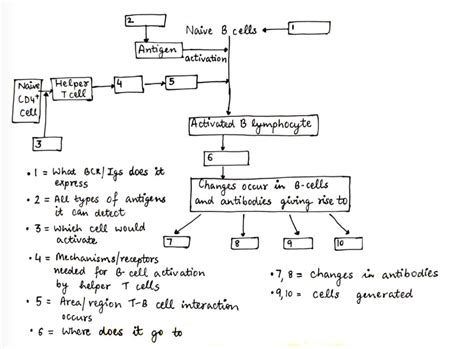 2
Naive B cells
1
Antigen
activation
Naive
CD4+
cell
Helper
T cell
4
5
3
Activated B lymphocyte
6
Changes occur in B-cells
and antibodies giving rise to
7
8
9
10
• 1 = What BCR/Igs does it
express
• 2 = All types of antigens
it can detect
• 3 = Which cell would
activate
• 4 = Mechanisms/receptors
needed for B-cell activation
by helper T cells
• 5 = Area/region T-B cell interaction
occurs
• 6 = Where does it go to
• 7, 8 = changes in antibodies
• 9, 10 = cells generated